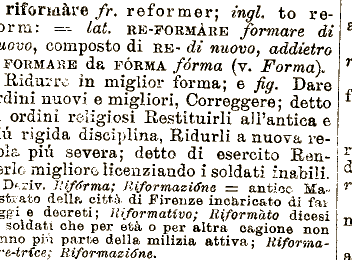 riformàre fr. reformer; ingl. to re-
orm: = lat. RE-FORMÀRE formare di
uovo, composto di RE- di nuovo, addietro
FORMARE da FÓRMA fórma (v. Forma).
Ridurre in miglior forma; e fig. Dare
rdini nuovi e migliori, Correggere; detto
i ordini religiosi Restituirli all'antica e
iú rigida disciplina, Ridurli a nuova re-
ola piú severa; detto di esercito Ren-
erlo migliore licenziando i soldati inabili.
Deriv. Rifórma; Riformazióne = antico Ma-
strato della città di Firenze incaricato di far
ggi e decreti; Riformativo; Riformàto dicesi
soldati che per età o per altra cagione non
nno piú parte della milizia attiva; Riforma-
re-tríce; Riformazióne.